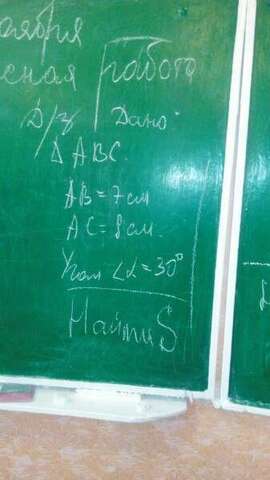 ября
сная работа
Д/з Дано:
Δ ABC.
AB = 7 см
AC = 8 см.
Угол <α = 30°
Найти S